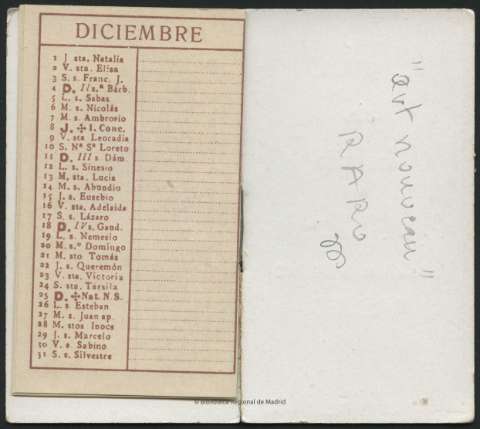 DICIEMBRE
1 J sta. Natalia
2 V. sta. Elisa
3 S. s. Franc. J.
4 D. II s.ª Bárb.
5 L. s. Sabas
6 M. s. Nicolás
7 M. s. Ambrosio
8 J. ✠ I. Conc.
9 V. sta Leocadia
10 S. Nª Sª Loreto
11 D. III s. Dám
12 L. s. Sinesio
13 M. sta. Lucia
14 M. s. Abundio
15 J. s. Eusebio
16 V. sta. Adelaida
17 S. s. Lázaro
18 D. IV s. Gaud.
19 L. s. Nemesio
20 M. s.º Domingo
21 M. sto Tomás
22 J. s. Queremón
23 V. sta. Victoria
24 S. sta. Tarsila
25 D. ✠ Nat. N. S.
26 L. s. Esteban
27 M. s. Juan ap.
28 M. stos Inocs
29 J. s. Marcelo
30 V. s. Sabino
31 S. s. Silvestre
"art nouveau"
RARO
© Biblioteca Regional de Madrid